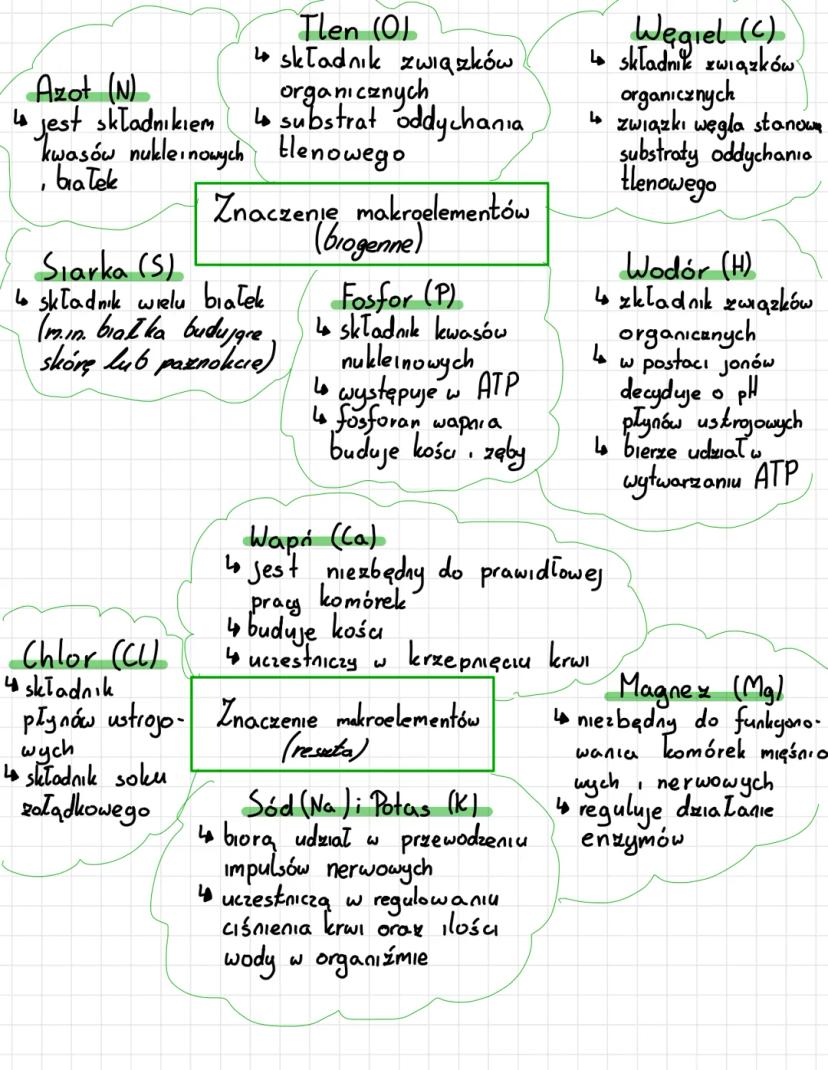 Tlen (O)
↳ składnik związków
organicznych
↳ substrat oddychania
tlenowego
Węgiel (C)
↳ składnik związków
organicznych
↳ związki węgla stanowią
substraty oddychania
tlenowego
Azot (N)
↳ jest składnikiem
kwasów nukleinowych
i białek
Znaczenie makroelementów
(biogenne)
Siarka (S)
↳ składnik wielu białek
(m.in. białka budujące
skórę lub paznokcie)
Fosfor (P)
↳ składnik kwasów
nukleinowych
↳ występuje w ATP
↳ fosforan wapnia
buduje kości i zęby
Wodór (H)
↳ zkładnik związków
organicznych
↳ w postaci jonów
decyduje o pH
płynów ustrojowych
↳ bierze udział w
wytwarzaniu ATP
Wapń (Ca)
↳ jest niezbędny do prawidłowej
pracy komórek
↳ buduje kości
↳ uczestniczy w krzepnięciu krwi
Chlor (Cl)
↳ składnik
płynów ustrojo-
wych
↳ składnik soku
żołądkowego
Znaczenie makroelementów
(reszta)
Magnez (Mg)
↳ niezbędny do funkcjono-
wania komórek mięśnio
wych i nerwowych
↳ reguluje działanie
enzymów
Sód (Na) i Potas (K)
↳ biorą udział w przewodzeniu
impulsów nerwowych
↳ uczestniczą w regulowaniu
ciśnienia krwi oraz ilości
wody w organiźmie